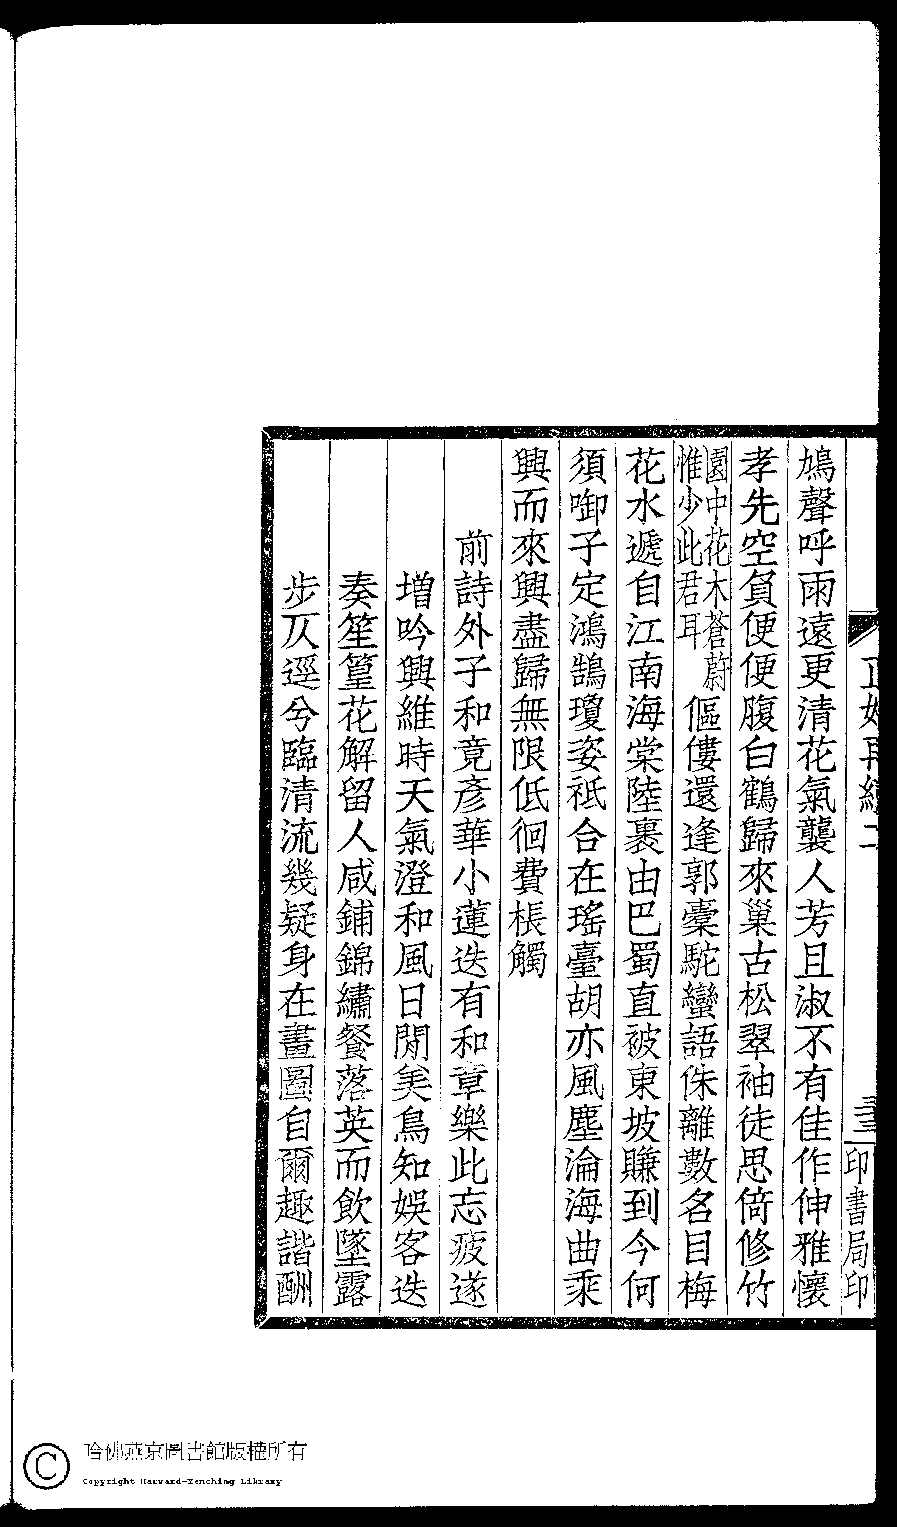 鳩聲呼雨遠更清花氣襲人芳且淑不有佳作伸雅懷
孝先空負便便腹白鶴歸來巢古松翠袖徒思倚修竹
園中花木蒼蔚
惟少此君耳
傴僂還逢郭橐駝蠻語侏離數名目梅
花水遞自江南海棠陸裹由巴蜀直被東坡賺到今何
須啣子定鴻鵠瓊姿祗合在瑤臺胡亦風塵淪海曲乘
興而來興盡歸無限低徊費棖觸
前詩外子和竟彥華小蓮迭有和章樂此忘疲遂
增吟興維時天氣澄和風日閒美鳥知娛客迭
奏笙篁花解留人咸鋪錦繡餐落英而飲墜露
步仄逕兮臨清流幾疑身在畫圖自爾趣諧酬
正始再續二
三三
印書局印
哈佛燕京圖書館版權所有
Copyright Harvard-Yenching Library